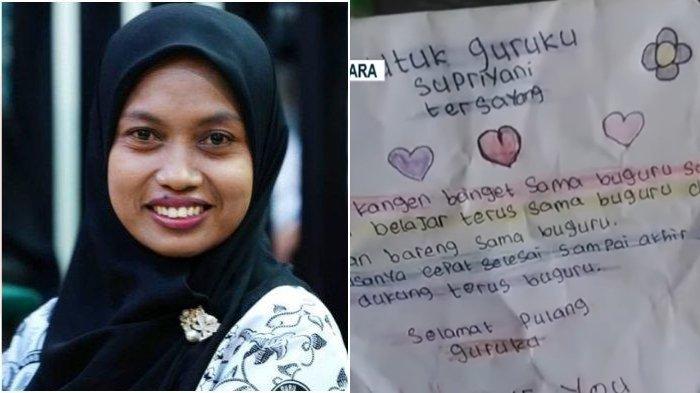 untuk guruku
ARA
Supriyani
tersayang
kangen banget sama buguru
belajar terus sama buguru
bareng sama buguru.
cepat selesai sampai akhir
dukung terus buguru.
Selamat Pulang
guruku
You